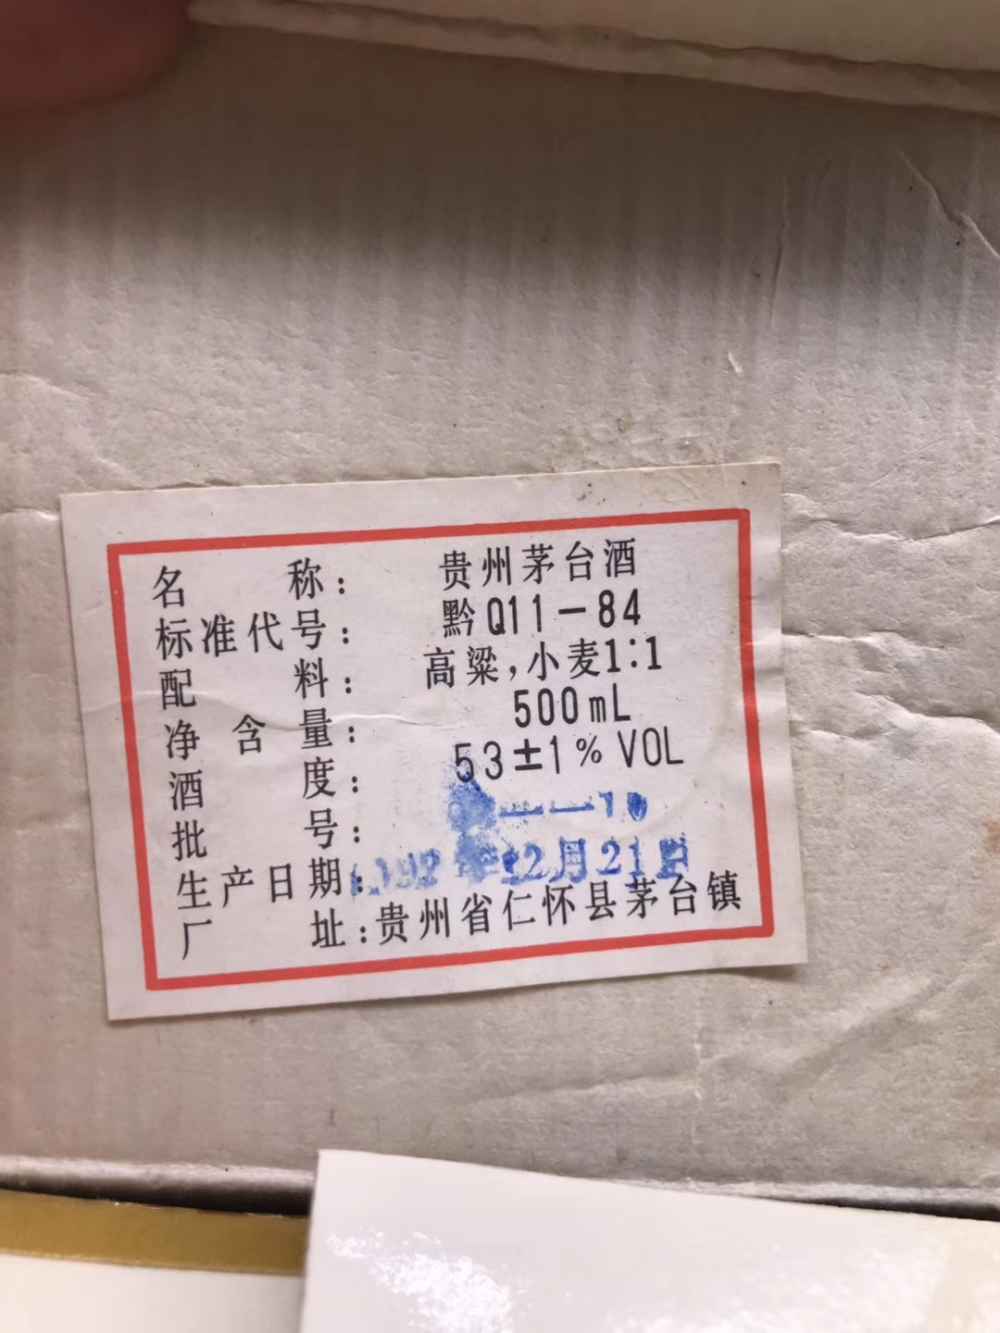 名称：贵州茅台酒
标准代号：黔Q11-84
配料：高粱,小麦1:1
净含量：500mL
酒度：53±1%VOL
批号：
生产日期：1992年12月21日
厂址：贵州省仁怀县茅台镇